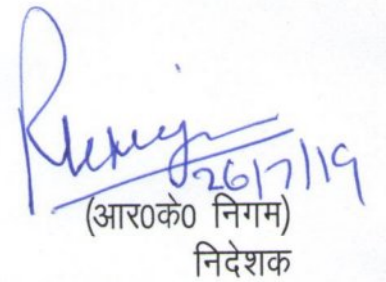 26/7/19
(आर0के0 निगम)
निदेशक